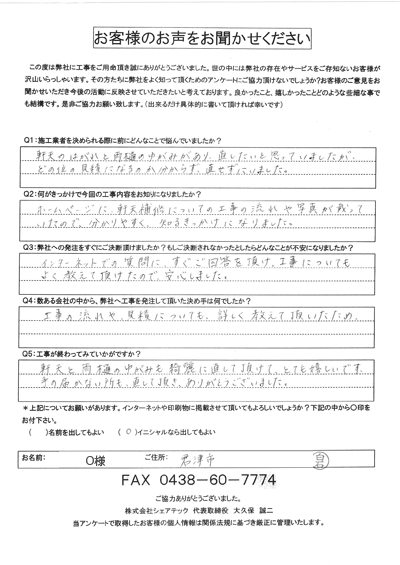 お客様のお声をお聞かせください
この度は弊社に工事をご用命頂き誠にありがとうございました。世の中には弊社の存在やサービスをご存知ないお客様が
沢山いらっしゃいます。その方たちに弊社をよく知って頂くためのアンケートにご協力頂けないでしょうか?お客様のご意見をお
聞かせいただき今後の活動に反映させていただきたいと考えております。良かったこと、嬉しかったことどのような些細な事で
も結構です。是非ご協力お願い致します。(出来るだけ具体的に書いて頂ければ幸いです)
Q1:施工業者を決められる際に前にどんなことで悩んでいましたか?
軒天のはがれと雨樋のゆがみがあり、直したいと思っていましたが、
どの位の見積になるのか分からず、直せずにいました。
Q2:何がきっかけで今回の工事内容をお知りになりましたか?
ホームページに、軒天補修についての工事の流れや写真が載って
いたので、分かりやすく、知るきっかけになりました。
Q3:弊社への発注をすぐにご決断頂けましたか?もしご決断されなかったとしたらどんなことが不安になりましたか?
インターネットでの質問に、すぐご回答を頂け、工事についても
よく教えて頂けたので、安心しました。
Q4:数ある会社の中から、弊社へ工事を発注して頂いた決め手は何でしたか?
工事の流れや、見積についても、詳しく教えて頂いたため。
Q5:工事が終わってみていかがですか?
軒天と雨樋のゆがみも綺麗に直して頂けて、とても嬉しいです。
手の届かない所も、直して頂き、ありがとうございました。
*上記についてお願いがあります。インターネットや印刷物に掲載させて頂いてもよろしいでしょうか?下記の中から○印を
お付け下さい。
( )名前を出してもよい (○)イニシャルなら出してもよい
お名前: O様 ご住所: 君津市
FAX 0438-60-7774
ご協力ありがとうございました。
株式会社シェアテック 代表取締役 大久保 誠二
当アンケートで取得したお客様の個人情報は関係法規に基づき厳正に管理いたします。